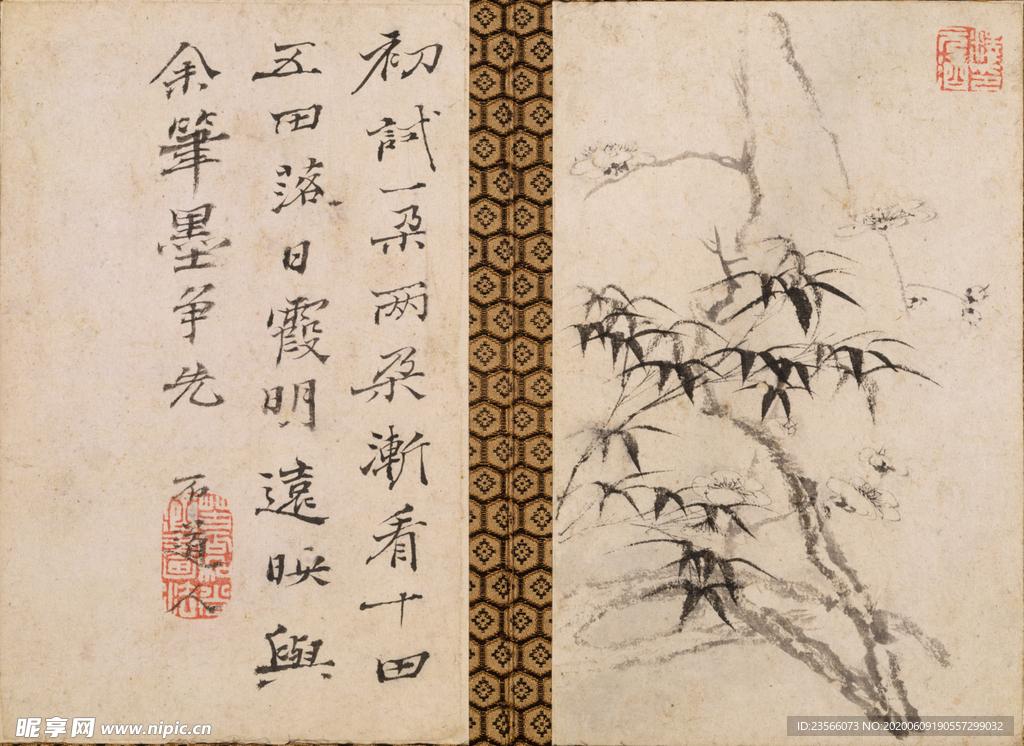 初試一朵两朵漸看十田
五田落日霞明遠映與
余筆墨争先
石道人
昵享网 www.nipic.cn
ID:23566073 NO:20200609190557299032